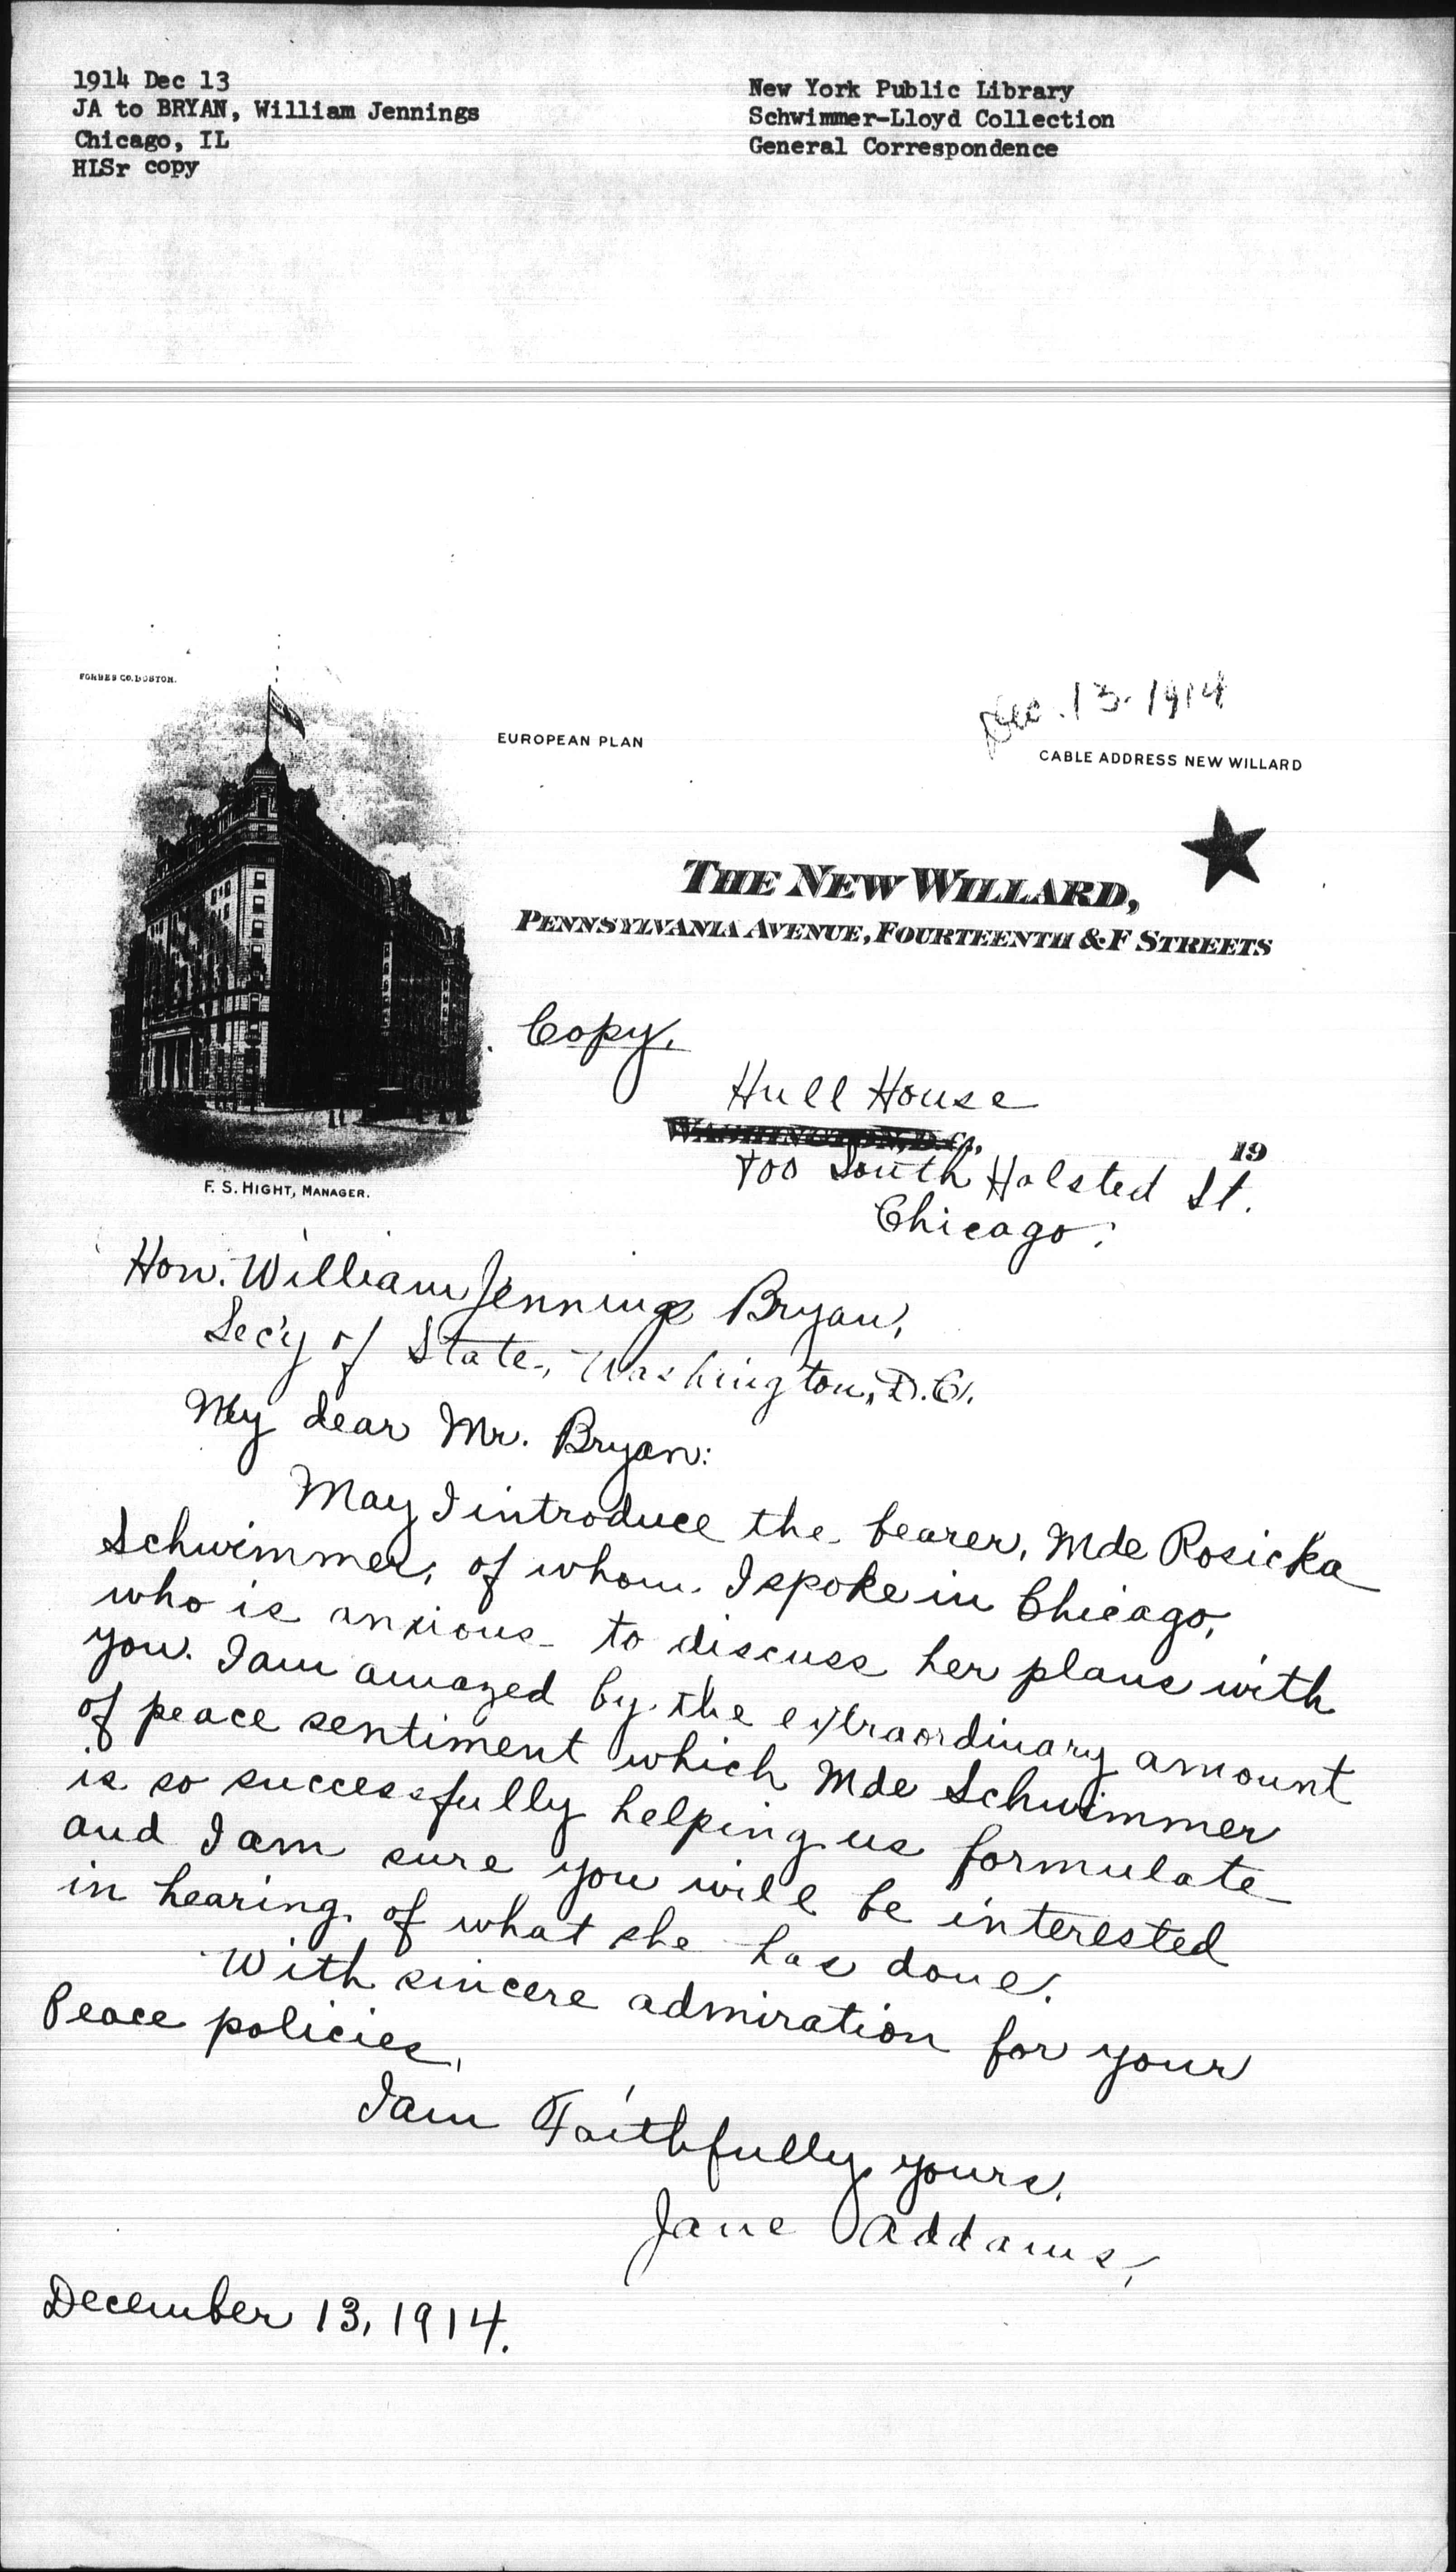 1914 Dec 13
JA to BRYAN, William Jennings
Chicago, IL
HLSr copy
New York Public Library
Schwimmer-Lloyd Collection
General Correspondence
FORBES CO. BOSTON.
Dec. 13. 1914
EUROPEAN PLAN
CABLE ADDRESS NEW WILLARD
THE NEW WILLARD,
PENNSYLVANIA AVENUE, FOURTEENTH & F STREETS
F. S. HIGHT, MANAGER.
Copy.
Hull House
WASHINGTON, D.C., 19
800 South Halsted St.
Chicago.
Hon. William Jennings Bryan,
Sec'y of State, Washington, D.C.
My dear Mr. Bryan:
May I introduce the bearer, Mde Rosicka
Schwimmer, of whom I spoke in Chicago,
who is anxious to discuss her plans with
you. I am amazed by the extraordinary amount
of peace sentiment which Mde Schwimmer
is so successfully helping us formulate
and I am sure you will be interested
in hearing of what she has done.
With sincere admiration for your
Peace policies,
I am Faithfully yours,
Jane Addams,
December 13, 1914.